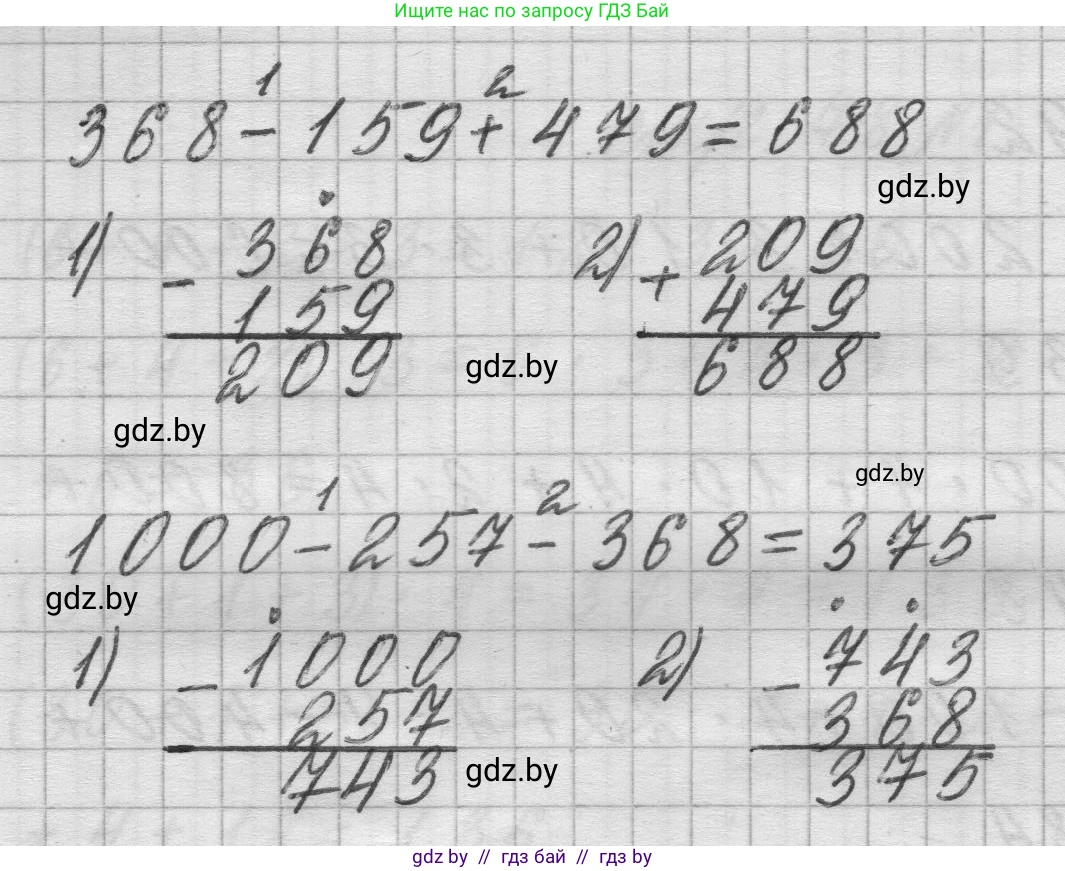 Ищите нас по запросу ГДЗ Бай
1 2
368 - 159 + 479 = 688
gdz.by
1) - 368
159
209
2) + 209
479
688
gdz.by
gdz.by
gdz.by
1 2
1000 - 257 - 368 = 375
gdz.by
1) - 1000
257
743
2) - 743
368
375
gdz.by
gdz by // гдз бай // гдз by